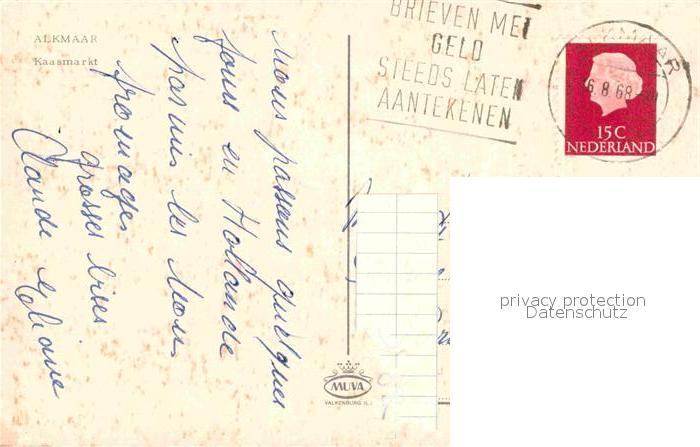 ALKMAAR
Kaasmarkt
BRIEVEN MET
GELD
STEEDS LATEN
AANTEKENEN
ALKMAAR
6.8.68
15 C
NEDERLAND
Nous passons quelques
jours en Hollande
parmis les bons
fromages
grosses bises
Vande Eliane
MUVA
VALKENBURG (L.)
privacy protection
Datenschutz